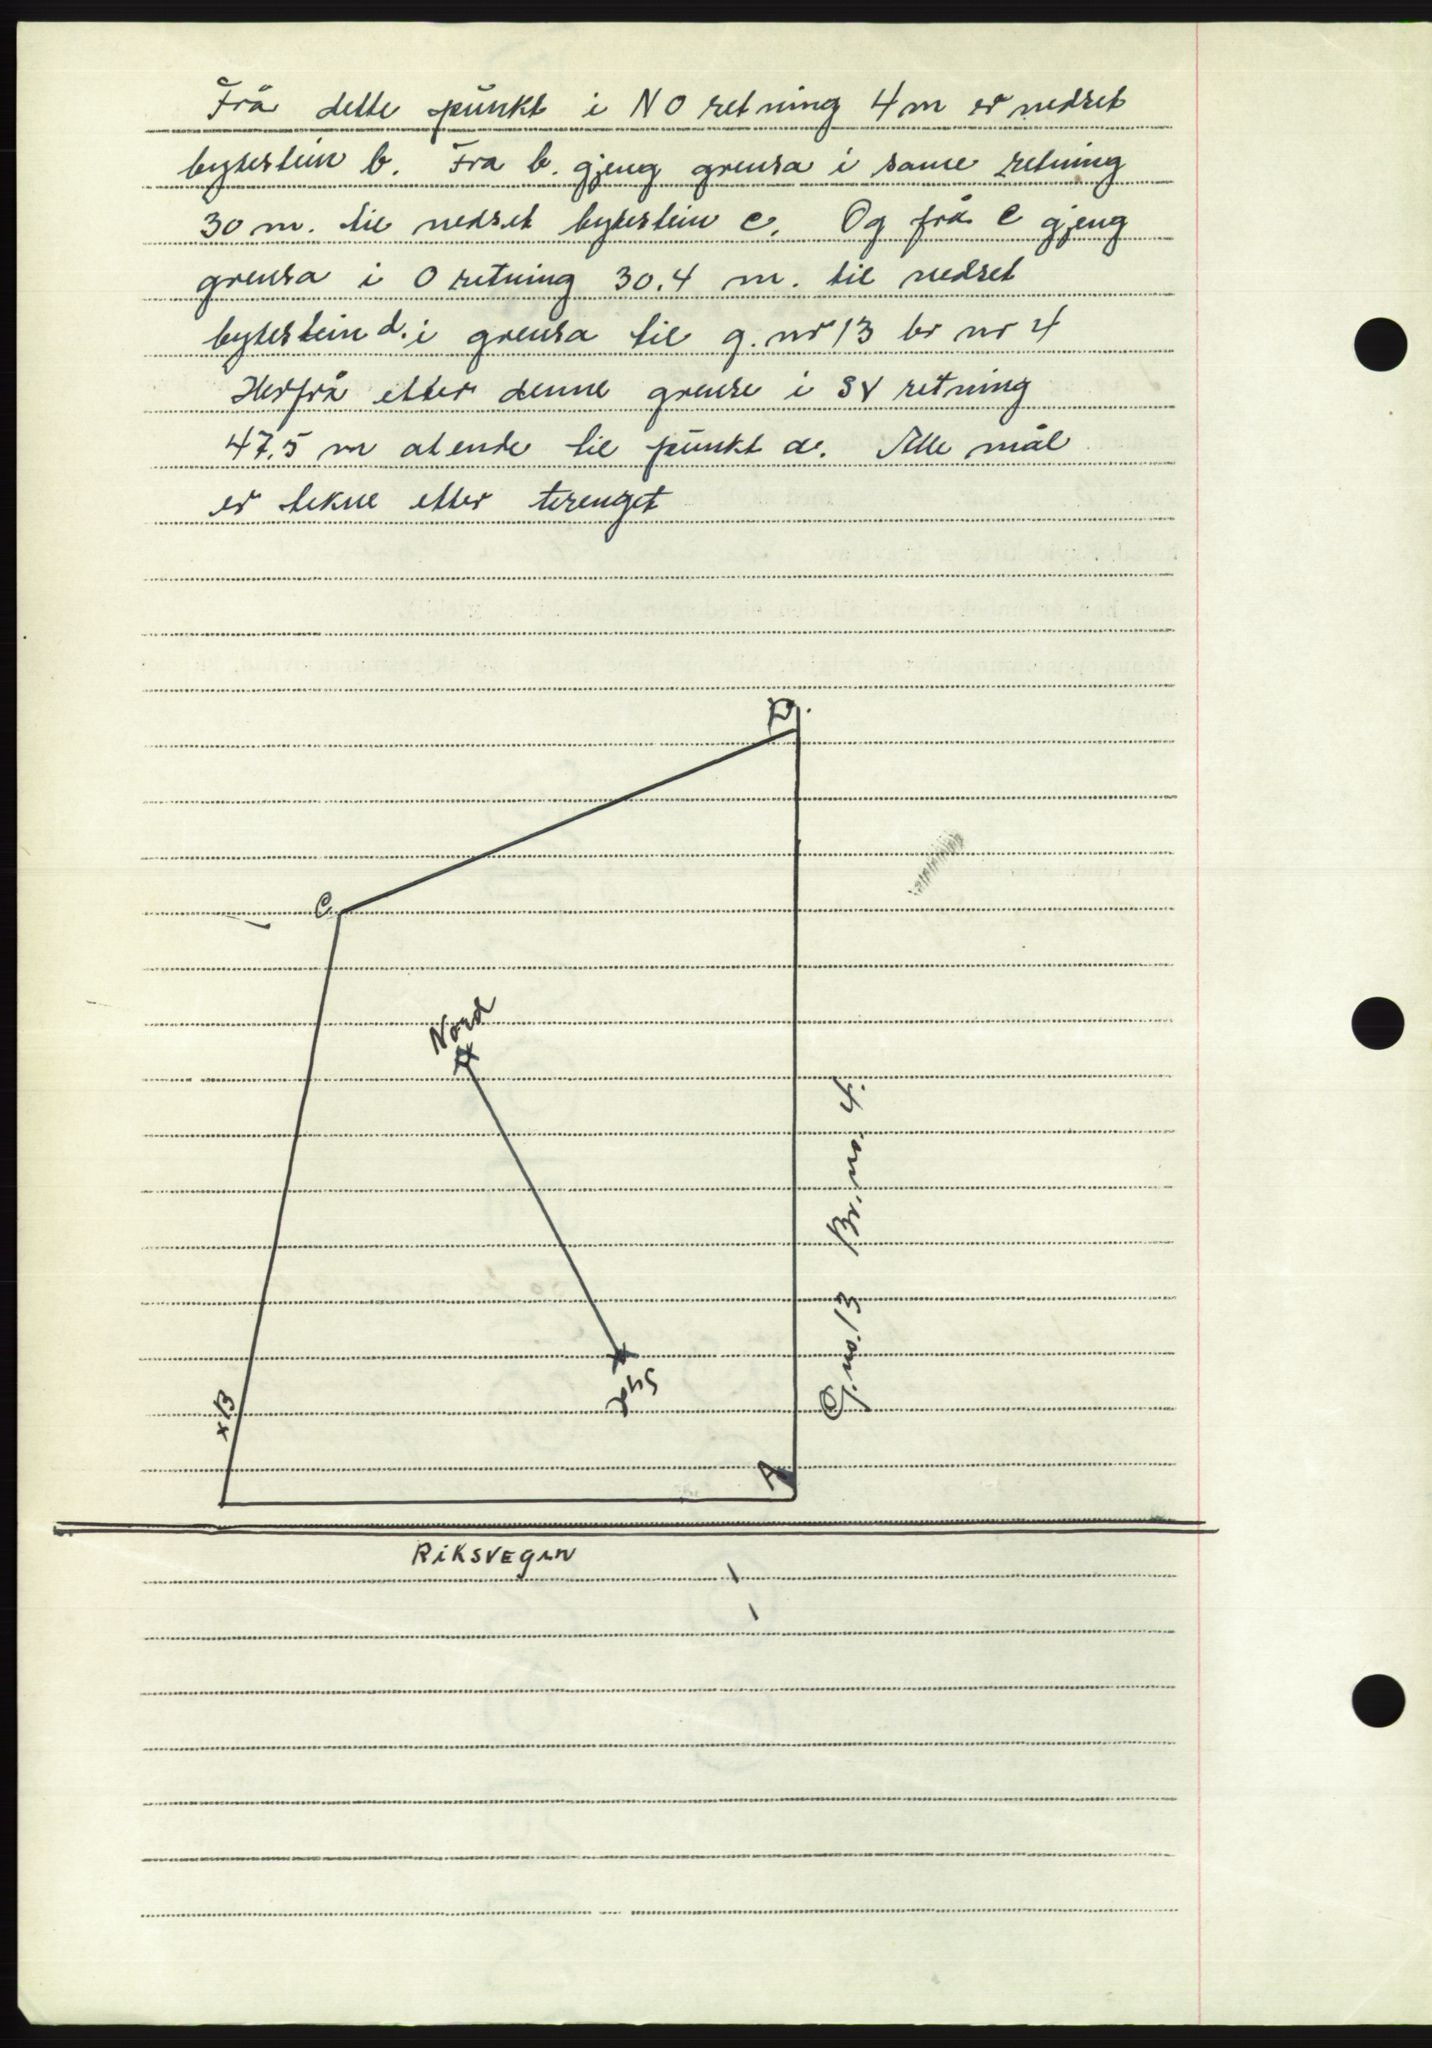 Frå dette punkt i NO retning 4 m er nedset
bytestein b. Fra b. gjeng grensa i same retning
30 m. til nedset bytestein c. Og frå c gjeng
grensa i O retning 30.4 m. til nedset
bytestein d. i grensa til g. nr 13 br nr 4
Herfrå etter denne grense i SV retning
47.5 m atende til punkt a. Alle mål
er tekne etter terenget
D.
C.
Nord
Syd
xB
A
G. no. 13 Br. no. 4.
RiKSVEGEN